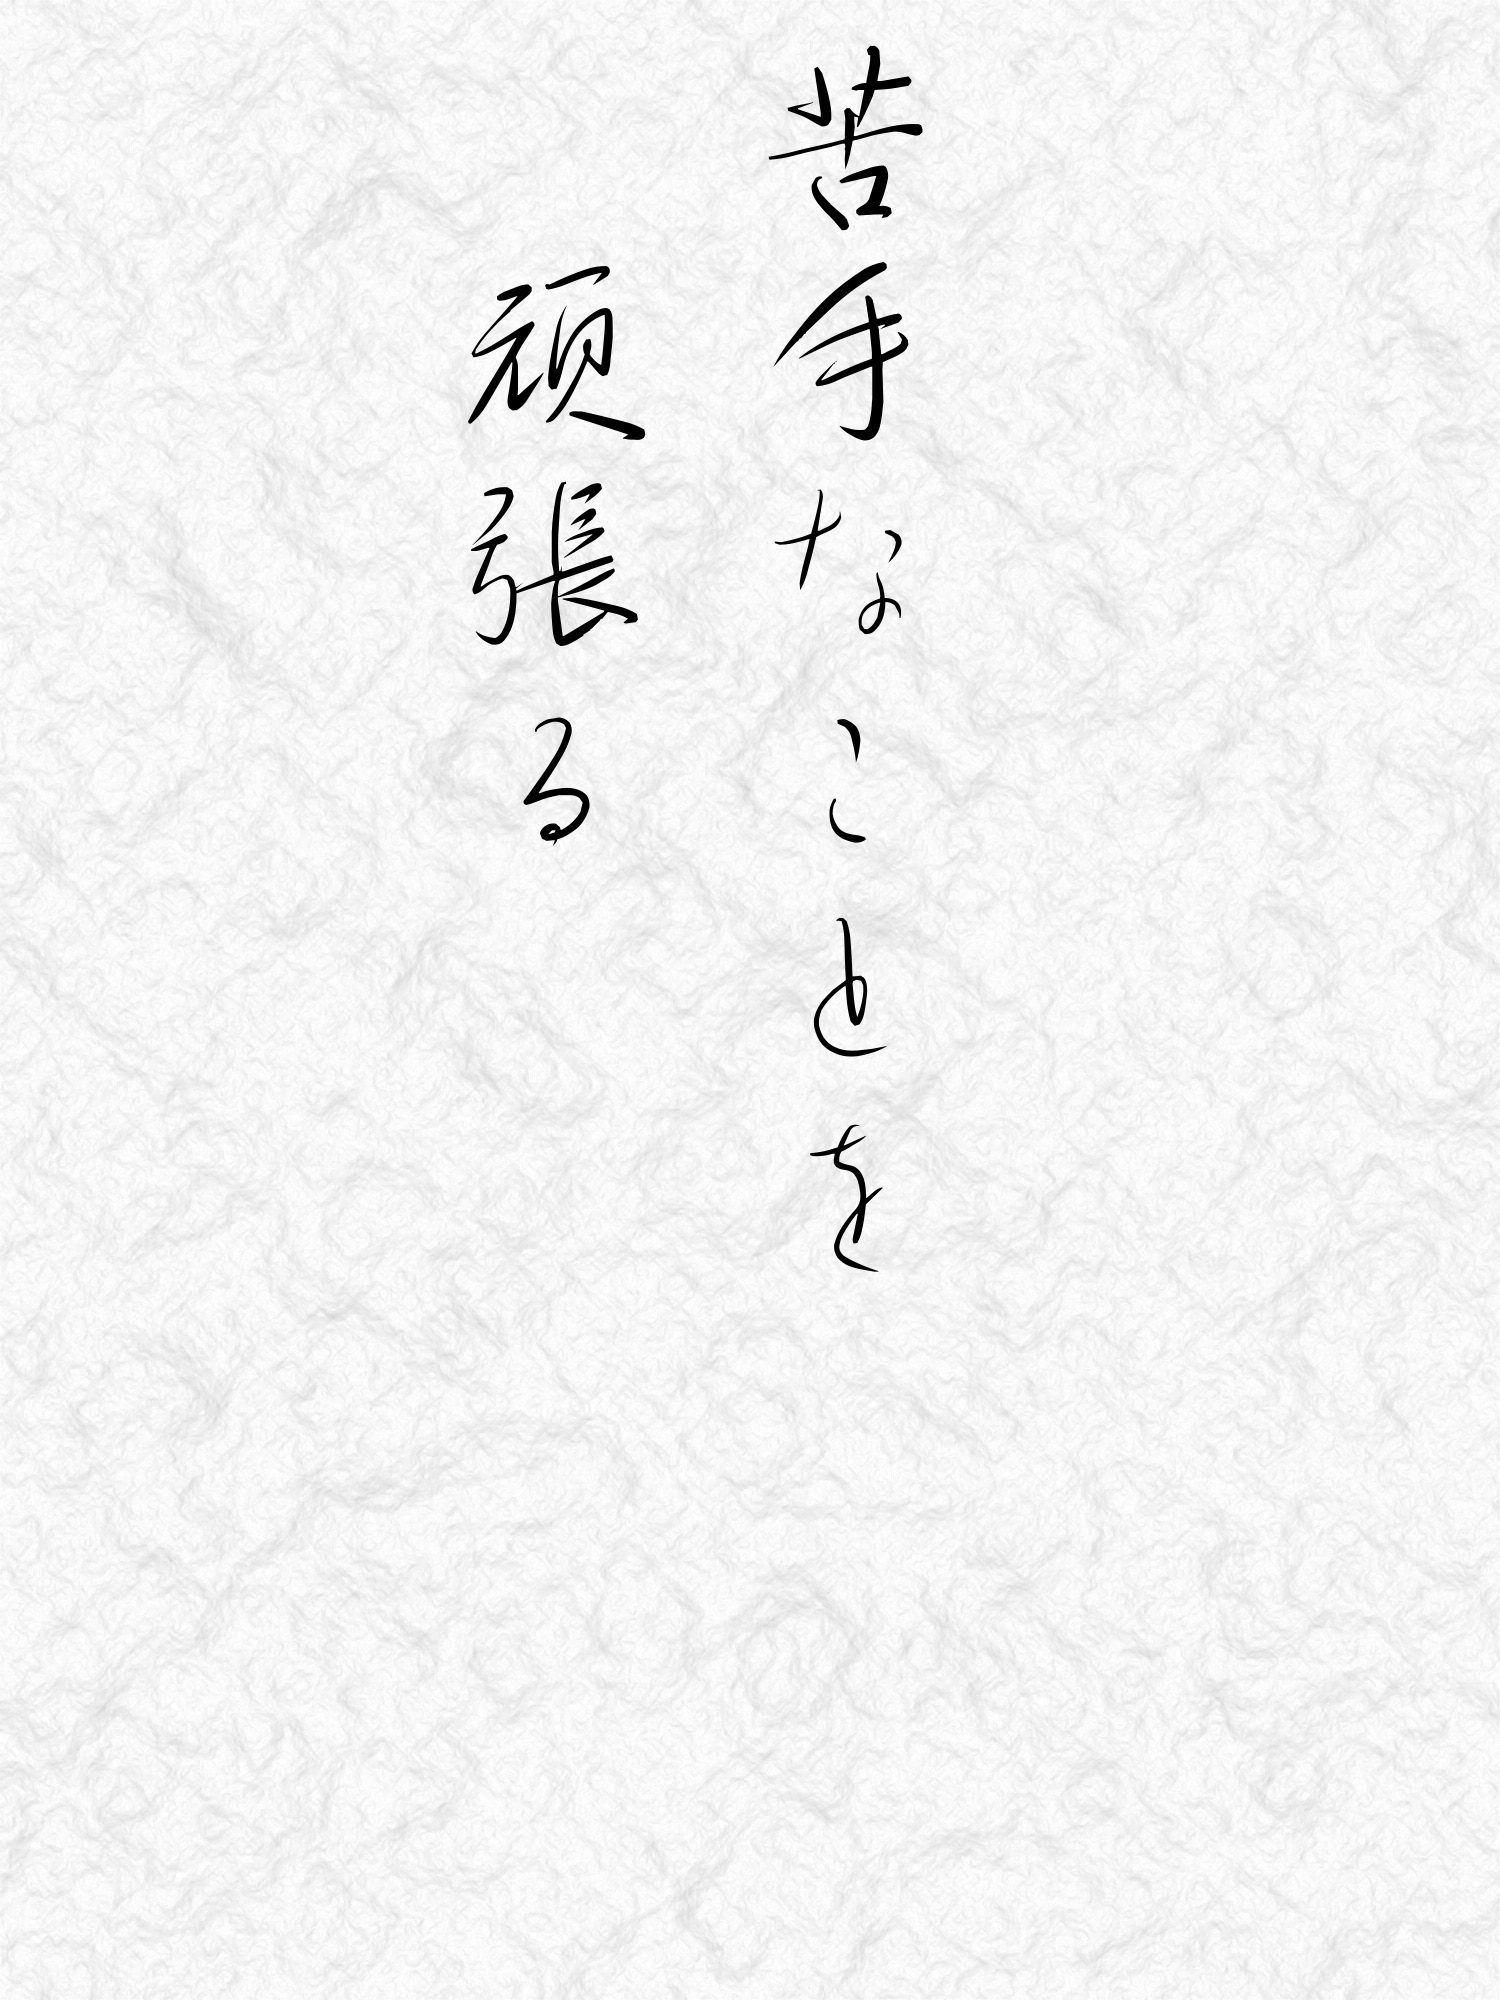 苦手なことを
頑張る